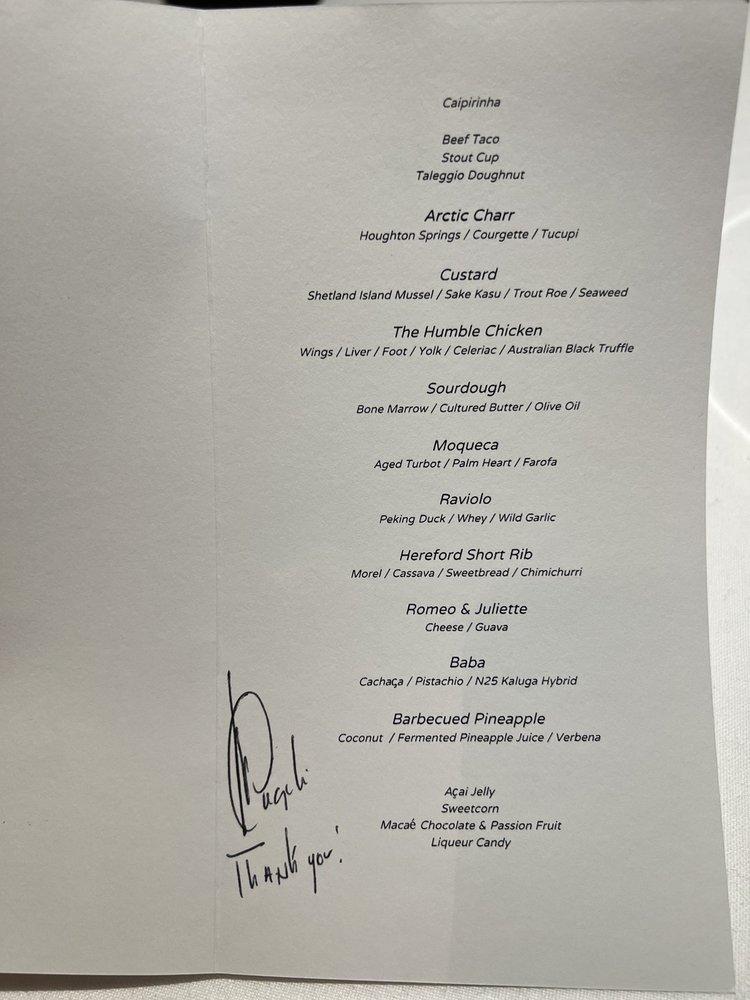 Caipirinha
Beef Taco
Stout Cup
Taleggio Doughnut
Arctic Charr
Houghton Springs / Courgette / Tucupi
Custard
Shetland Island Mussel / Sake Kasu / Trout Roe / Seaweed
The Humble Chicken
Wings / Liver / Foot / Yolk / Celeriac / Australian Black Truffle
Sourdough
Bone Marrow / Cultured Butter / Olive Oil
Moqueca
Aged Turbot / Palm Heart / Farofa
Raviolo
Peking Duck / Whey / Wild Garlic
Hereford Short Rib
Morel / Cassava / Sweetbread / Chimichurri
Romeo & Juliette
Cheese / Guava
Baba
Cachaça / Pistachio / N25 Kaluga Hybrid
Barbecued Pineapple
Coconut / Fermented Pineapple Juice / Verbena
Açai Jelly
Sweetcorn
Macaé Chocolate & Passion Fruit
Liqueur Candy
Thank you!